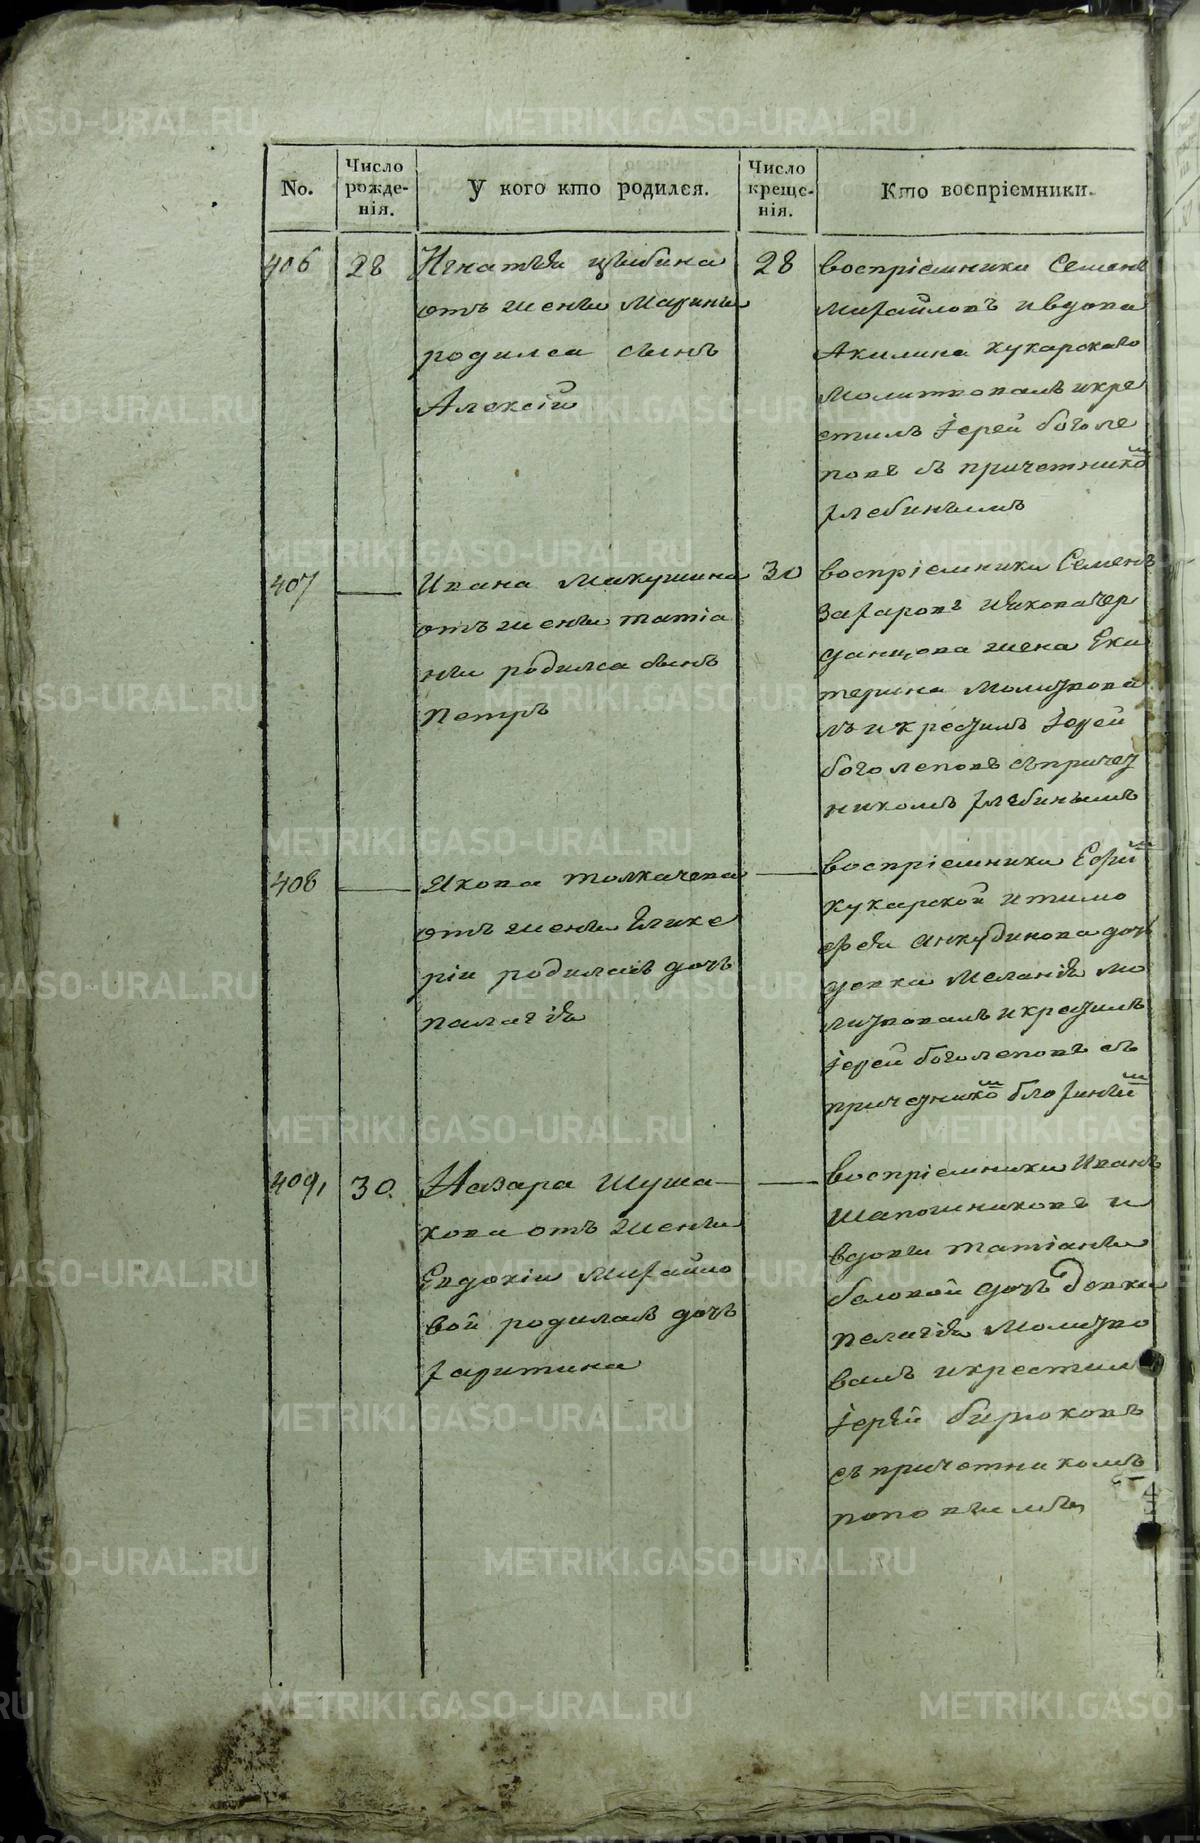 No.
Число рожде-нія.
У кого кто родился.
Число креще-нія.
Кто воспріемники.
406
28
Игнатія цыбина
отъ жены Марины
родился сынъ
Алексій
28
воспріемники Семенъ
михайловъ и вдова
Акилина кукарскаго
молитвовалъ и кре
стилъ іерей боголе
повъ съ причетнико м
хлебинымъ
407
Ивана Макушина
отъ жены татіа
ны родился сынъ
Петръ
30
воспріемники Семенъ
захаровъ иякова чер
данцова жена Ека
терина молитвова
лъ и крестилъ іерей
боголеповъ съ причет
никомъ хлебинымъ
408
Якова толкачева
отъ жены
ріи родилась дочь
палагія
воспріемники
кукарской и тимо
фея анкудинова доч
девка Меланія мо
литвовалъ и крестилъ
іерей боголеповъ съ
причетнико м
409
30
Назара Шуша
кова отъ жены
Евдокіи Михайло
вой родилась дочь
харитина
воспріемники Иванъ
шапошниковъ и
вдовы татіаны
беловой дочь девки
пелагія Молитво
валъ и крестил
іерей бирюковъ
съ причетникомъ
поповымъ
METRIKI.GASO-URAL.RU